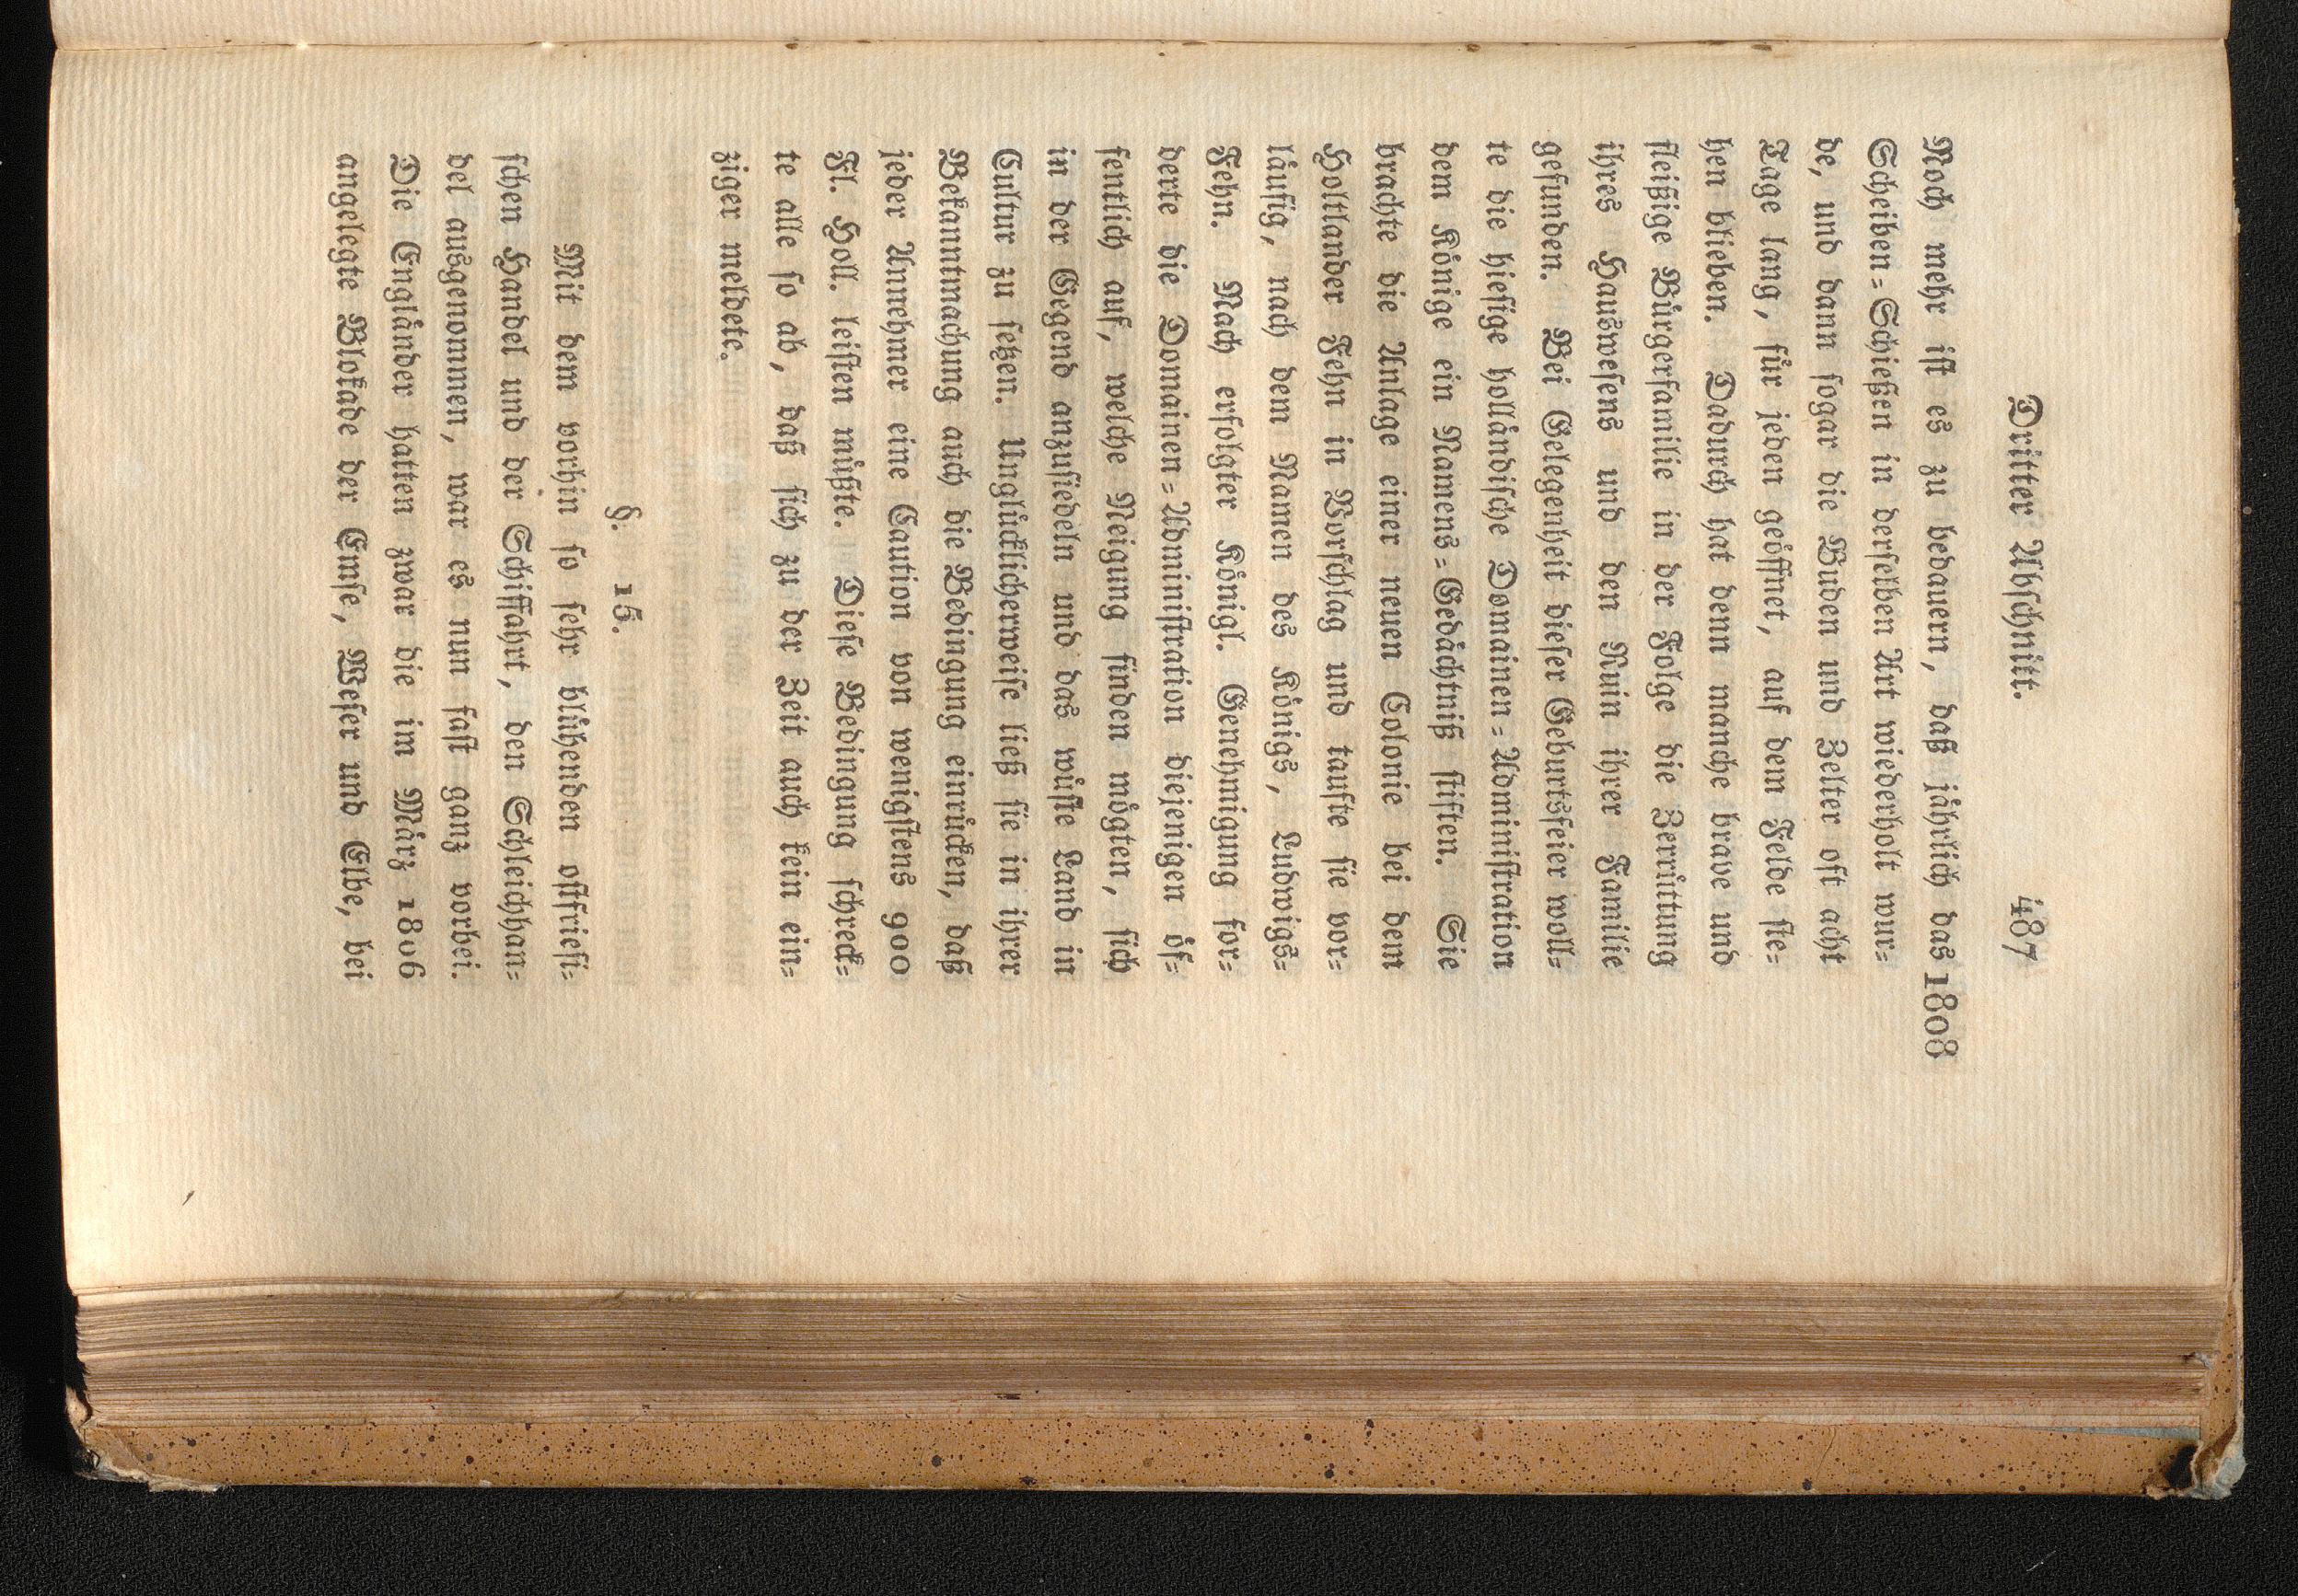 Dritter Abschnitt. 487
Noch mehr ist es zu bedauern, daß jährlich das 1808
Scheiben=Schießen in derselben Art wiederholt wur=
de, und dann sogar die Buden und Zelter oft acht
Tage lang, für jeden geöffnet, auf dem Felde ste=
hen blieben. Dadurch hat denn manche brave und
fleißige Bürgerfamilie in der Folge die Zerrüttung
ihres Hauswesens und den Ruin ihrer Familie
gefunden. Bei Gelegenheit dieser Geburtsfeier woll=
te die hiesige holländische Domainen=Administration
dem Könige ein Namens=Gedächtniß stiften. Sie
brachte die Anlage einer neuen Colonie bei dem
Holtlander Fehn in Vorschlag und taufte sie vor=
läufig, nach dem Namen des Königs, Ludwigs=
Fehn. Nach erfolgter Königl. Genehmigung for=
derte die Domainen=Administration diejenigen öf=
fentlich auf, welche Neigung finden mögten, sich
in der Gegend anzusiedeln und das wüste Land in
Cultur zu setzen. Unglücklicherweise ließ sie in ihrer
Bekanntmachung auch die Bedingung einrücken, daß
jeder Annehmer eine Caution von wenigstens 900
Fl. Holl. leisten müßte. Diese Bedingung schreck=
te alle so ab, daß sich zu der Zeit auch kein ein=
ziger meldete.
§. 15.
Mit dem vorhin so sehr blühenden ostfriesi=
schen Handel und der Schiffahrt, den Schleichhan=
del ausgenommen, war es nun fast ganz vorbei.
Die Engländer hatten zwar die im März 1806
angelegte Blokade der Emse, Weser und Elbe, bei